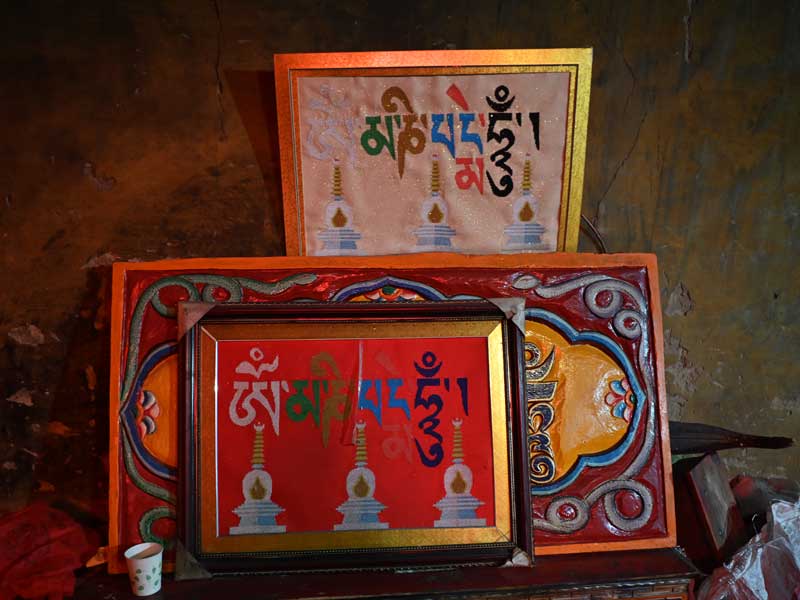 ཨོཾ་མ་ཎི་པདྨེ་ཧཱུྃ།
ཨོཾ་མ་ཎི་པདྨེ་ཧཱུྃ།